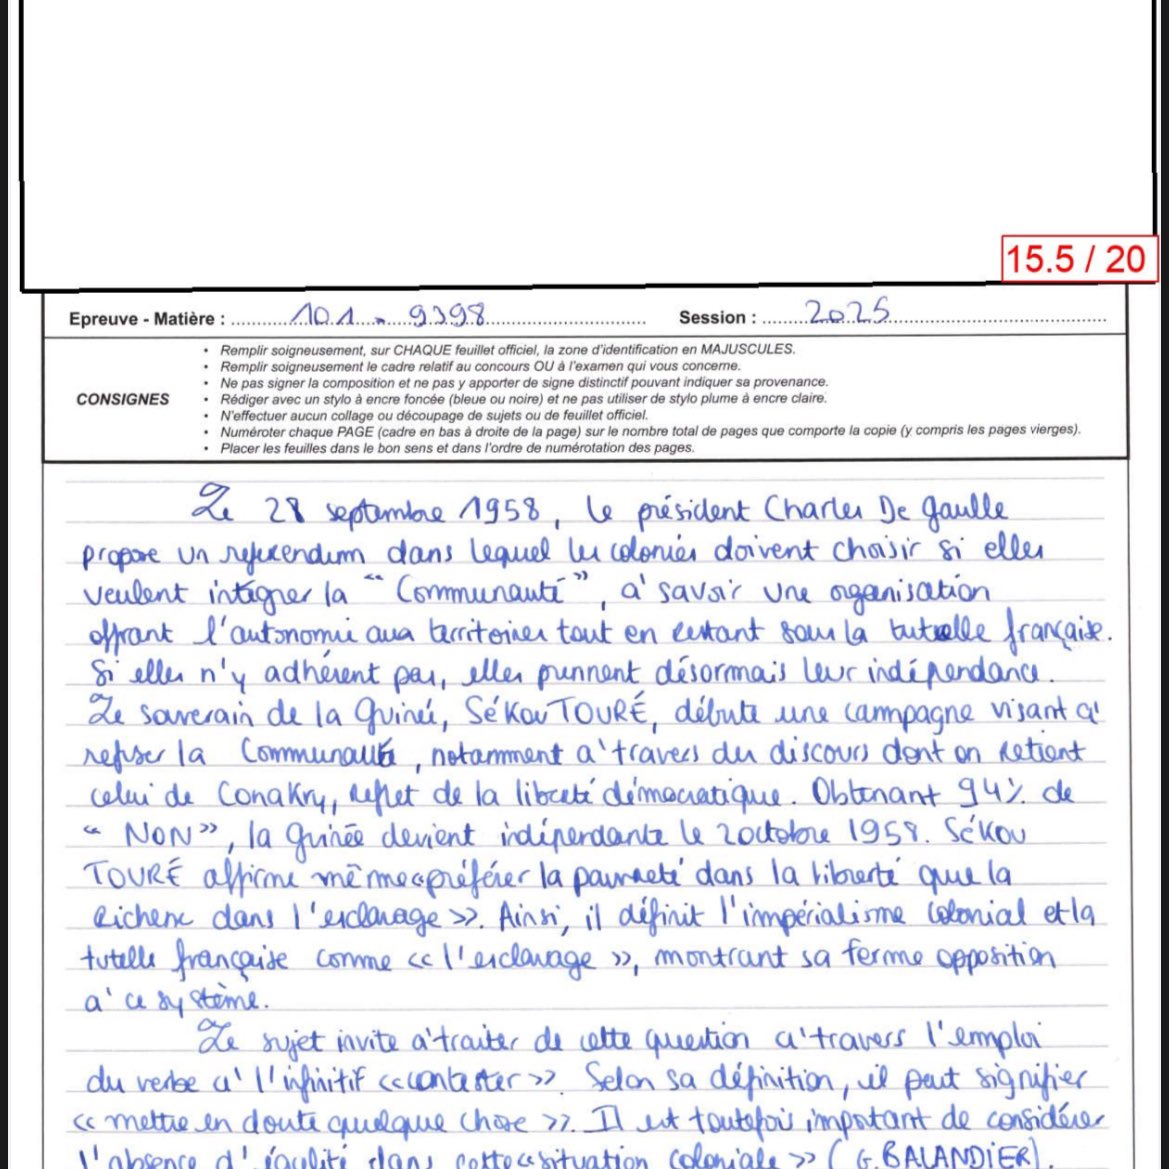 15.5 / 20
Epreuve - Matière : 101 - 9398 Session : 2025
CONSIGNES
• Remplir soigneusement, sur CHAQUE feuillet officiel, la zone d'identification en MAJUSCULES.
• Remplir soigneusement le cadre relatif au concours OU à l'examen qui vous concerne.
• Ne pas signer la composition et ne pas y apporter de signe distinctif pouvant indiquer sa provenance.
• Rédiger avec un stylo à encre foncée (bleue ou noire) et ne pas utiliser de stylo plume à encre claire.
• N'effectuer aucun collage ou découpage de sujets ou de feuillet officiel.
• Numéroter chaque PAGE (cadre en bas à droite de la page) sur le nombre total de pages que comporte la copie (y compris les pages vierges).
• Placer les feuilles dans le bon sens et dans l'ordre de numérotation des pages.
Le 28 septembre 1958, le président Charles De Gaulle
propose un referendum dans lequel les colonies doivent choisir si elles
veulent intégrer la "Communauté", à savoir une organisation
offrant l'autonomie aux territoires tout en restant sous la tutelle française.
Si elles n'y adhérent pas, elles prennent désormais leur indépendance.
Le souverain de la Guinée, SéKou TOURÉ, débute une campagne visant à
refuser la Communauté, notamment à travers des discours dont on retient
celui de ConaKry, reflet de la liberté démocratique. Obtenant 94% de
"NON", la Guinée devient indépendante le 2 octobre 1958. SéKou
TOURÉ affirme même « préférer la pauvreté dans la liberté que la
richesse dans l'esclavage ». Ainsi, il définit l'impérialisme colonial et la
tutelle française comme « l'esclavage », montrant sa ferme opposition
à ce système.
Le sujet invite à traiter de cette question à travers l'emploi
du verbe à l'infinitif « contester ». Selon sa définition, il peut signifier
« mettre en doute quelque chose ». Il est toutefois important de considérer
l'absence d'égalité dans cette « situation coloniale » (G. BALANDIER).